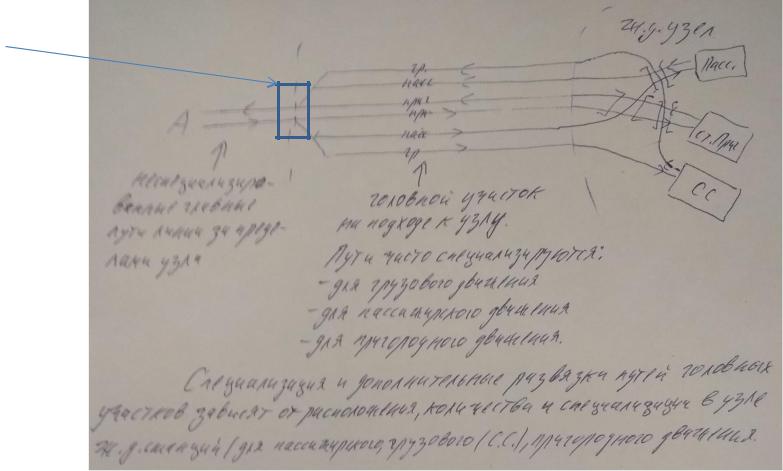 ж.д. узел
Пасс.
гр.
пасс
приг
А
приг
ст. Приг
пасс
гр
СС
неспециализиро-
ванные главные
пути линии за преде-
лами узла
головной участок
на подходе к узлу.
Пути часто специализируются:
- для грузового движения
- для пассажирского движения
- для пригородного движения.
Специализация и дополнительные развязки путей головных
участков зависят от расположения, количества и специализации в узле
ж.д. станций (для пассажирского, грузового (С.С.), пригородного движения.